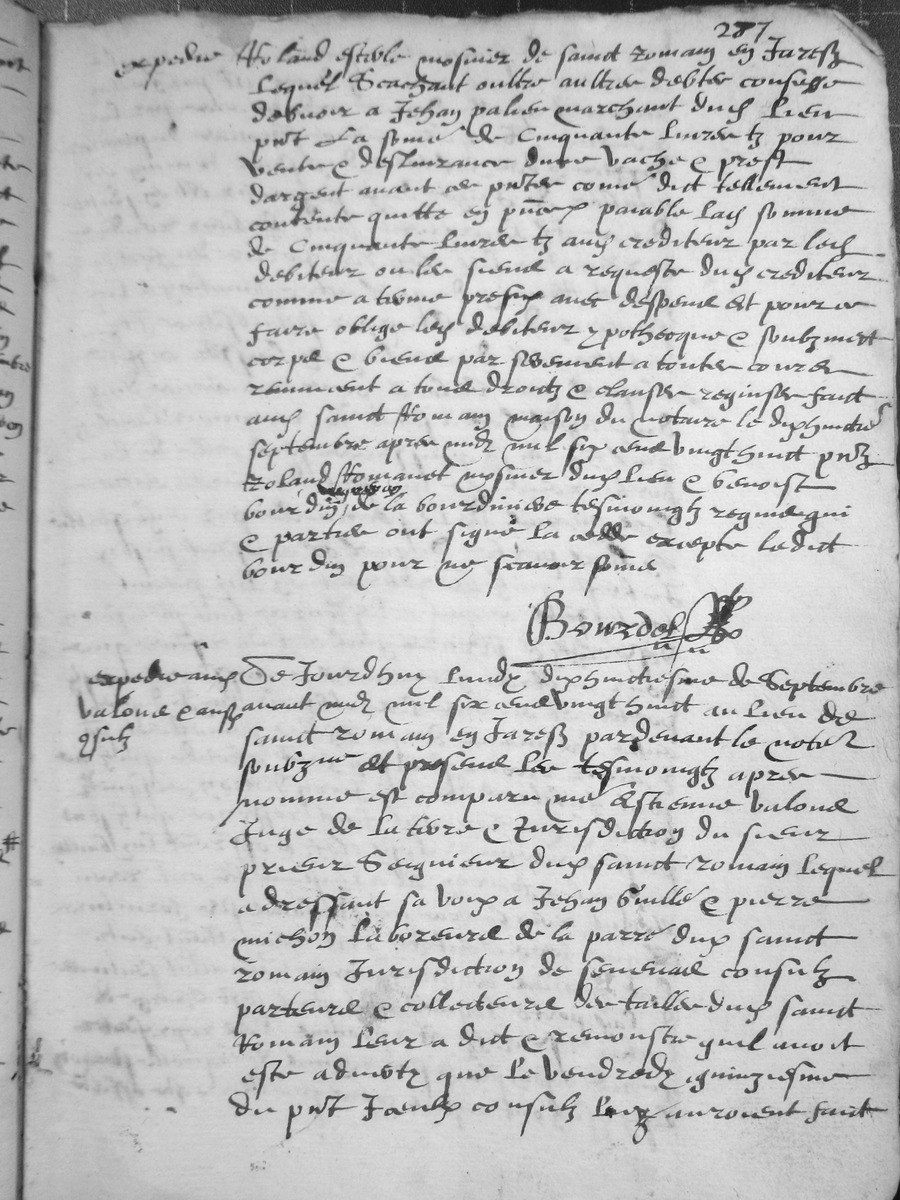 287
expedie Roland estiole mosnier de sainct romain en Jarestz
Lequel Scachant oultre aultres debtes confesse
debvoir a Jehan palier marchant dud Lieu
pnt La some de Cinquante Livres tz pour
vente & deslivrance dune vache & prest
dargent avant ces pntes come dict tellement
contente quitte en paiable Lad somme
de Cinquante Livres tz aud crediteur par led
debiteur ou les siens a requeste dud crediteur
comme a terme prefix avec despens et pour ce
faire oblige led debiteur ypothecque & soubzmect
corps & biens par serement a toutes coures
renuncent a tous droictz & clauses requises faict
aud sainct Romain maison du notaire le dixhuictie
septembre apres midy mil six cens vingt huict pntz
Roland Romanet mosnier dud Lieu & benoist
bourdin de la bourdiniere tesmoingtz requis qui
& parties ont signe La cedde excepte ledict
bourdin pour ne scavoir some
Bourdel
expedie aud Ce Jourdhuy Lundy dixhuictiesme de Septembre
valous & ausd avant midy mil six cens vingt huict au lieu de
9sulz sainct romain en Jarestz pardevant le noter
soubzne et presens les tesmoingtz apres
nomme est comparu me Estienne valous
Juge de La terre & Jurisdiction du sieur
prieur Seigneur dud sainct romain Lequel
adressant sa voix a Jehan Guille & pierre
michon Laboreurs de la parre dud sainct
romain Jurisdiction de senevas consulz
parteurs & collecteurs des tailles dud sainct
Romain Leur a dict & remonstre quil avoit
este adverty que Le vendredy quinziesme
du pnt Iceulx consulz auroient faict